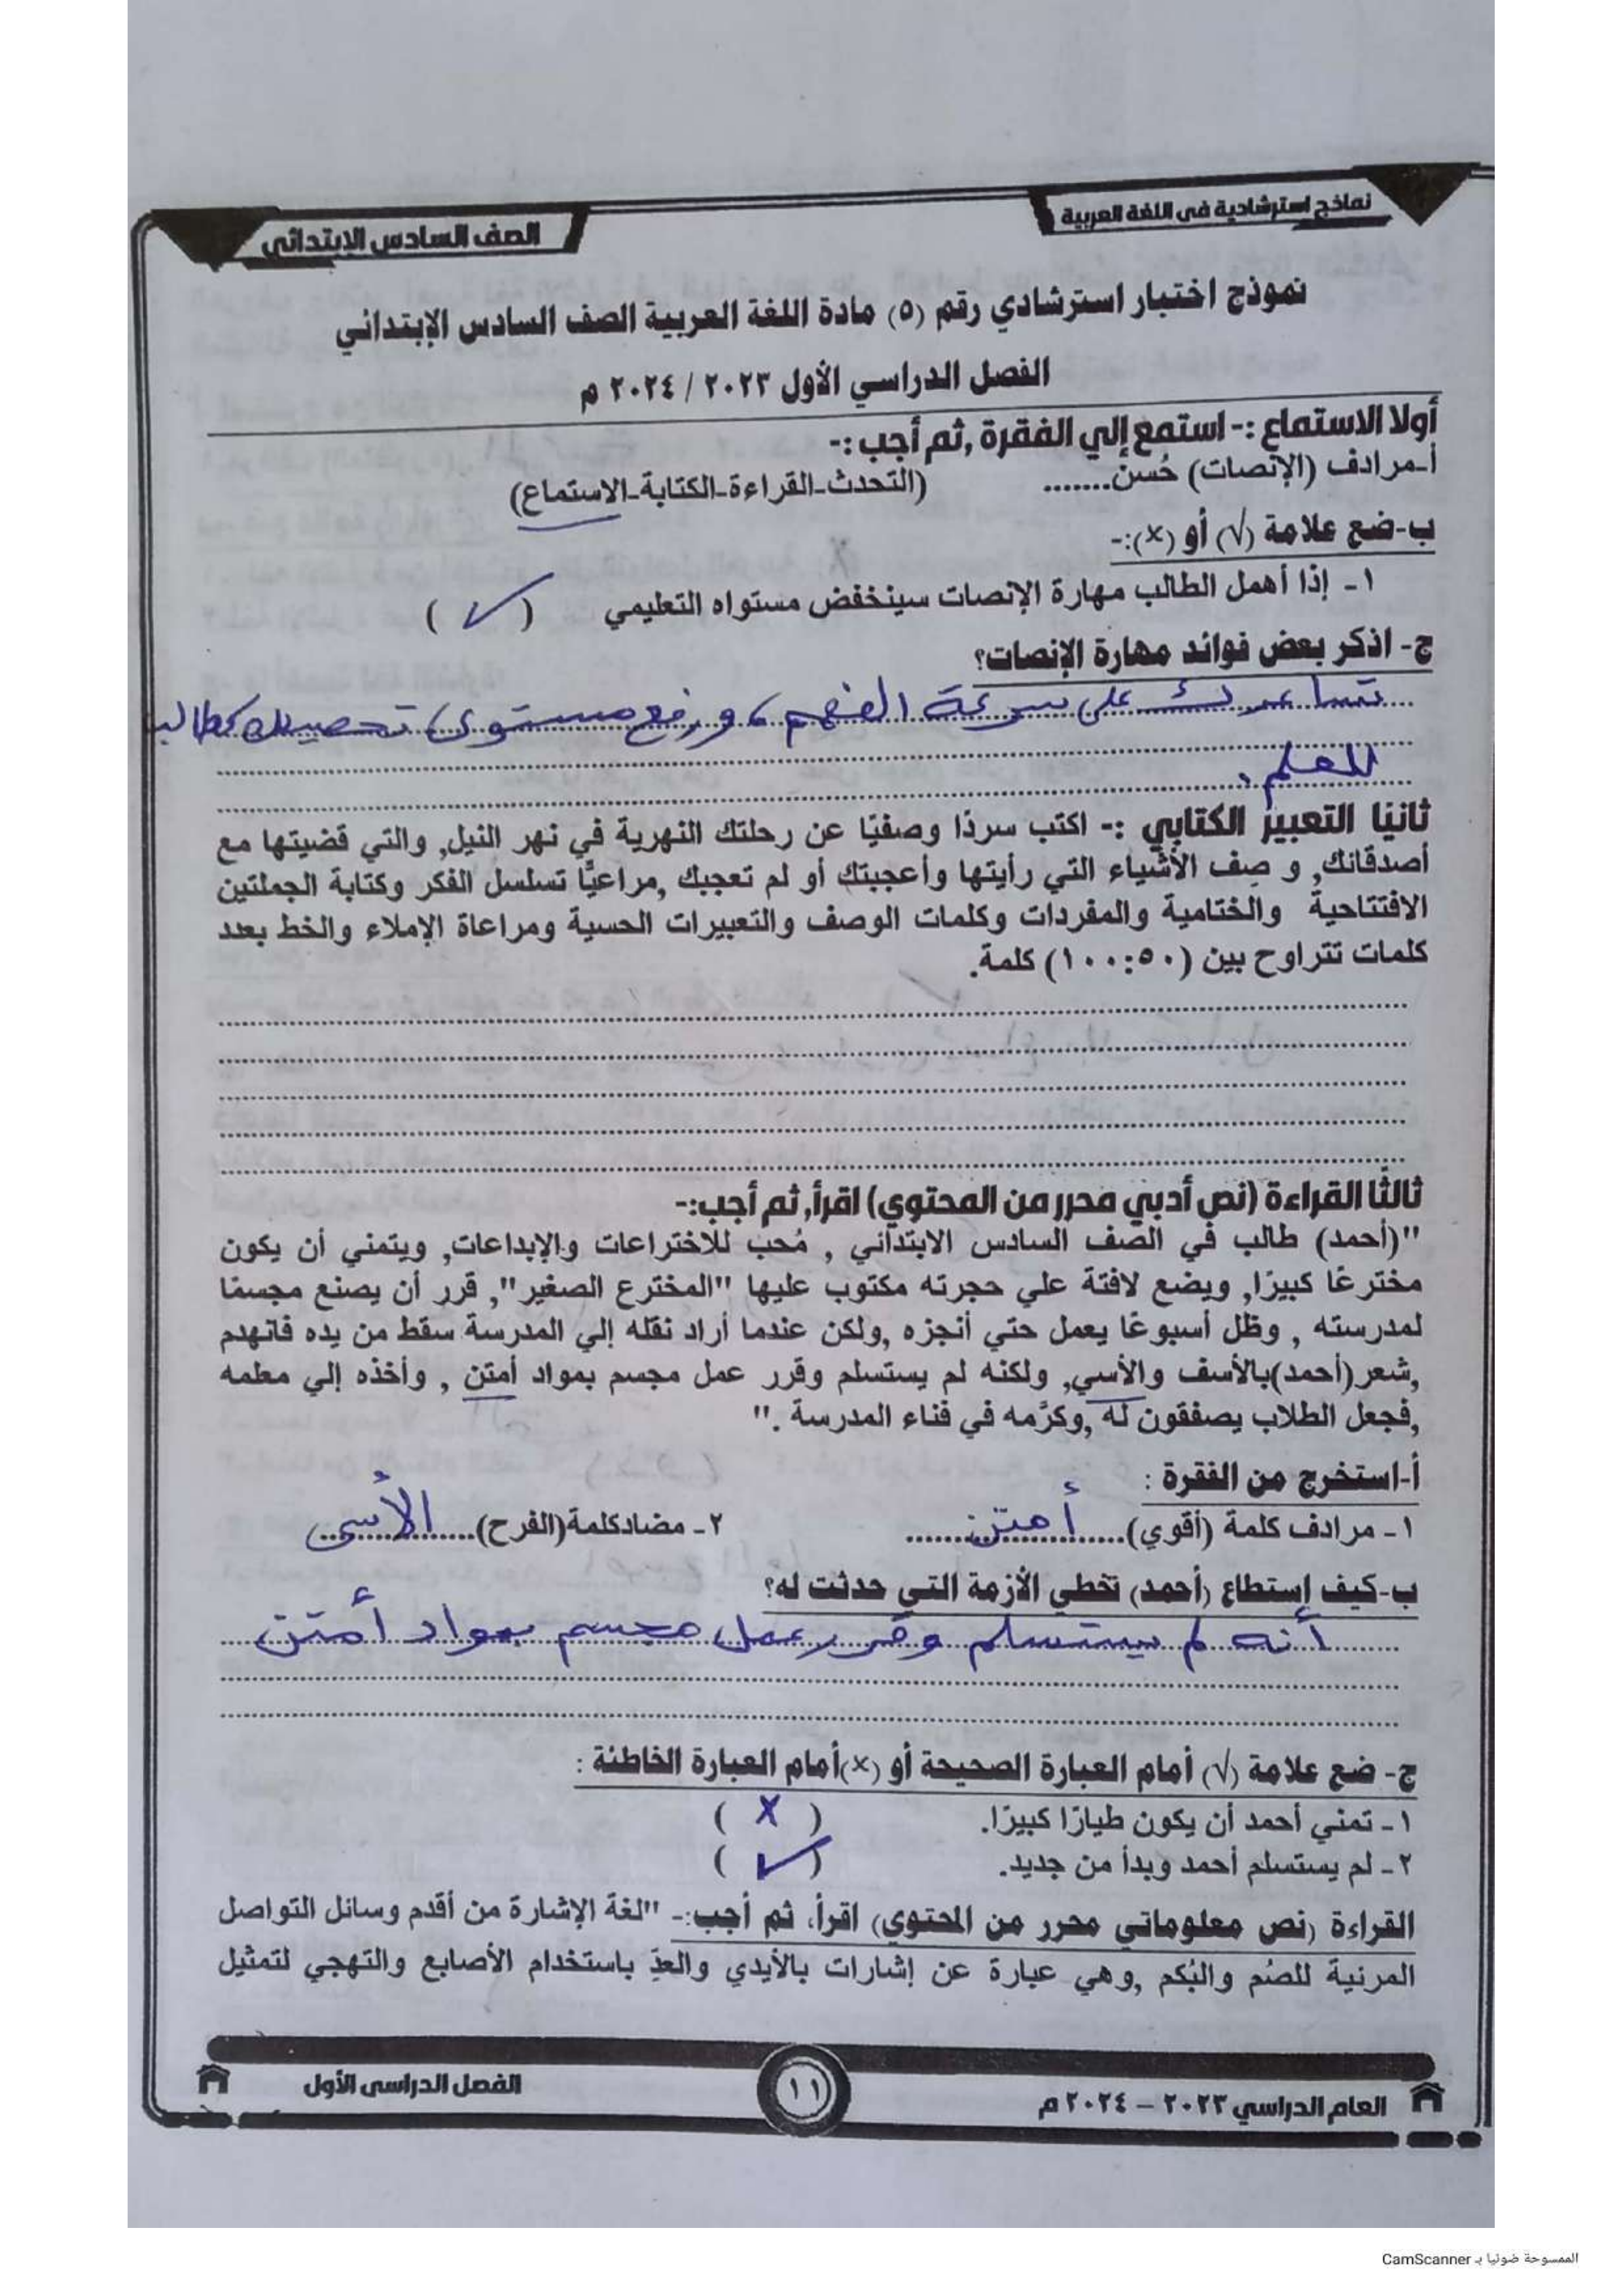 نماذج استرشادية في اللغة العربية
الصف السادس الابتدائي
نموذج اختبار استرشادي رقم (٥) مادة اللغة العربية الصف السادس الإبتدائي
الفصل الدراسي الأول ٢٠٢٣ / ٢٠٢٤ م
أولا الاستماع :- استمع إلي الفقرة ,ثم أجب :-
أ-مرادف (الإنصات) حُسن....... (التحدث-القراءة-الكتابة-الاستماع)
ب-ضع علامة (√) أو (×):-
١- إذا أهمل الطالب مهارة الإنصات سينخفض مستواه التعليمي ( ✓ )
ج- اذكر بعض فوائد مهارة الإنصات؟
تساعدك على سرعة الفهم، ورفع مستوى تحصيلك كطالب
للعلم.
ثانيًا التعبير الكتابي :- اكتب سردًا وصفيًا عن رحلتك النهرية في نهر النيل, والتي قضيتها مع
أصدقائك, و صِف الأشياء التي رأيتها وأعجبتك أو لم تعجبك ,مراعيًا تسلسل الفكر وكتابة الجملتين
الافتتاحية والختامية والمفردات وكلمات الوصف والتعبيرات الحسية ومراعاة الإملاء والخط بعدد
كلمات تتراوح بين (١٠٠:٥٠) كلمة.
ثالثًا القراءة (نص أدبي محرر من المحتوي) اقرأ, ثم أجب:-
"(أحمد) طالب في الصف السادس الابتدائي , مُحب للاختراعات والإبداعات, ويتمني أن يكون
مخترعًا كبيرًا, ويضع لافتة علي حجرته مكتوب عليها "المخترع الصغير", قرر أن يصنع مجسمًا
لمدرسته , وظل أسبوعًا يعمل حتي أنجزه ,ولكن عندما أراد نقله إلي المدرسة سقط من يده فانهدم
,شعر(أحمد)بالأسف والأسي, ولكنه لم يستسلم وقرر عمل مجسم بمواد أمتن , وأخذه إلي معلمه
,فجعل الطلاب يصفقون له ,وكرَّمه في فناء المدرسة ."
أ-استخرج من الفقرة :
١- مرادف كلمة (أقوي)......أمتن...... ٢- مضادكلمة(الفرح)......الأسى......
ب-كيف إستطاع (أحمد) تخطي الأزمة التي حدثت له؟
أنه لم يستسلم وقرر عمل مجسم بمواد أمتن
ج- ضع علامة (√) أمام العبارة الصحيحة أو (×)أمام العبارة الخاطئة :
١- تمني أحمد أن يكون طيارًا كبيرًا. ( X )
٢- لم يستسلم أحمد وبدأ من جديد. ( ✓ )
القراءة (نص معلوماتي محرر من المحتوي) اقرأ، ثم أجب:- "لغة الإشارة من أقدم وسائل التواصل
المرئية للصُم والبُكم ,وهي عبارة عن إشارات بالأيدي والعدِّ باستخدام الأصابع والتهجي لتمثيل
العام الدراسي ٢٠٢٣ – ٢٠٢٤ م
١١
الفصل الدراسى الأول
الممسوحة ضوئيا بـ CamScanner